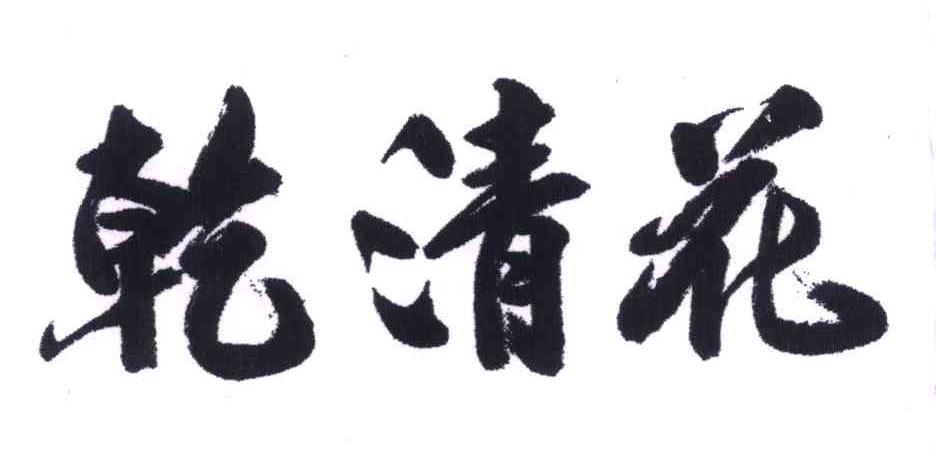 乾清花